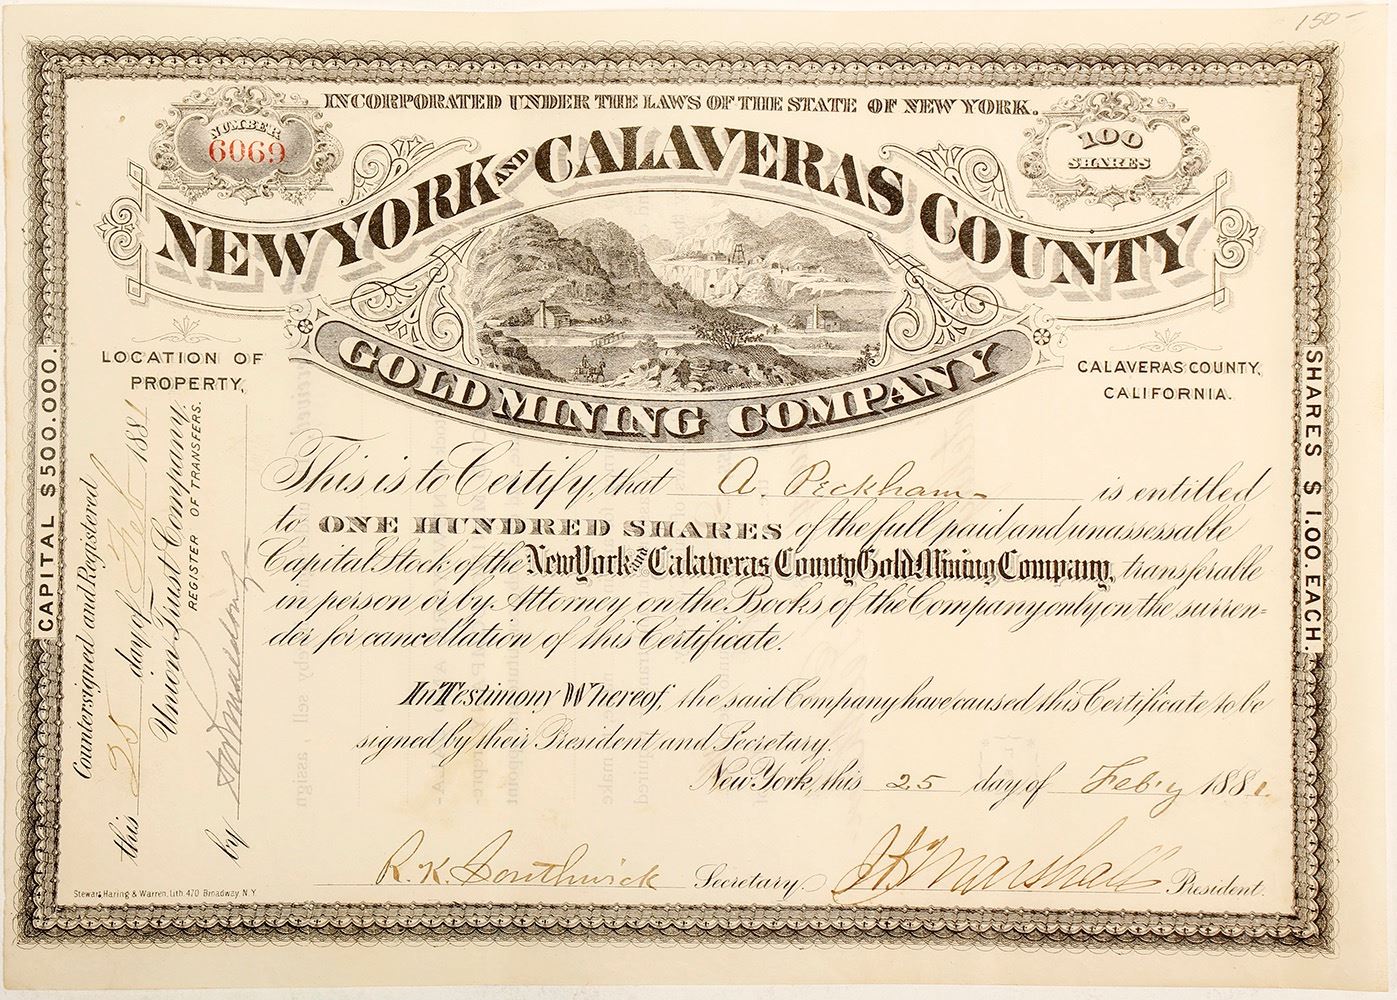 150-
INCORPORATED UNDER THE LAWS OF THE STATE OF NEW YORK.
NUMBER
6069
100
SHARES
NEW YORK AND CALAVERAS COUNTY
GOLD MINING COMPANY
LOCATION OF
PROPERTY,
CALAVERAS COUNTY,
CALIFORNIA.
CAPITAL $500.000.
SHARES $1.00. EACH.
Countersigned and Registered
this 25 day of Feb 1881
Union Trust Company.
REGISTER OF TRANSFERS.
by
This is to Certify, that A. Peckham is entitled
to ONE HUNDRED SHARES of the full paid and unassessable
Capital Stock of the New York and Calaveras County Gold Mining Company, transferable
in person or by Attorney on the Books of the Company only on the surren-
der for cancellation of this Certificate.
In Testimony Whereof, the said Company have caused this Certificate to be
signed by their President and Secretary.
New York, this 25 day of Feb'y 1881.
R. K. Southwick Secretary. Marshall President.
Stewart, Haring & Warren, Lith. 470 Broadway, N.Y.